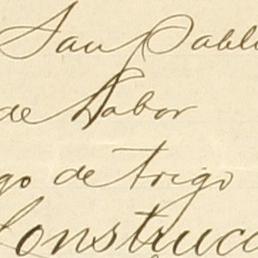 San Pablo
de Labor
go de trigo
Construcc